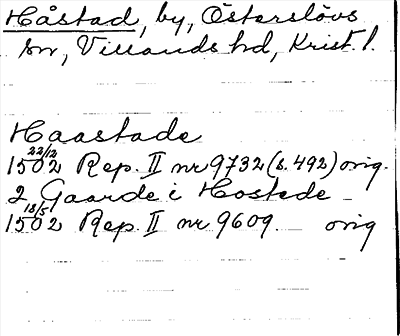 Håstad, by, Österslövs
sn, Villands hd, Krist. l.
Haastade
22/12
1502 Rep. II nr 9732 (s. 492) orig.
2 Gaarde i Hostede
18/5
1502 Rep. II nr 9609 orig